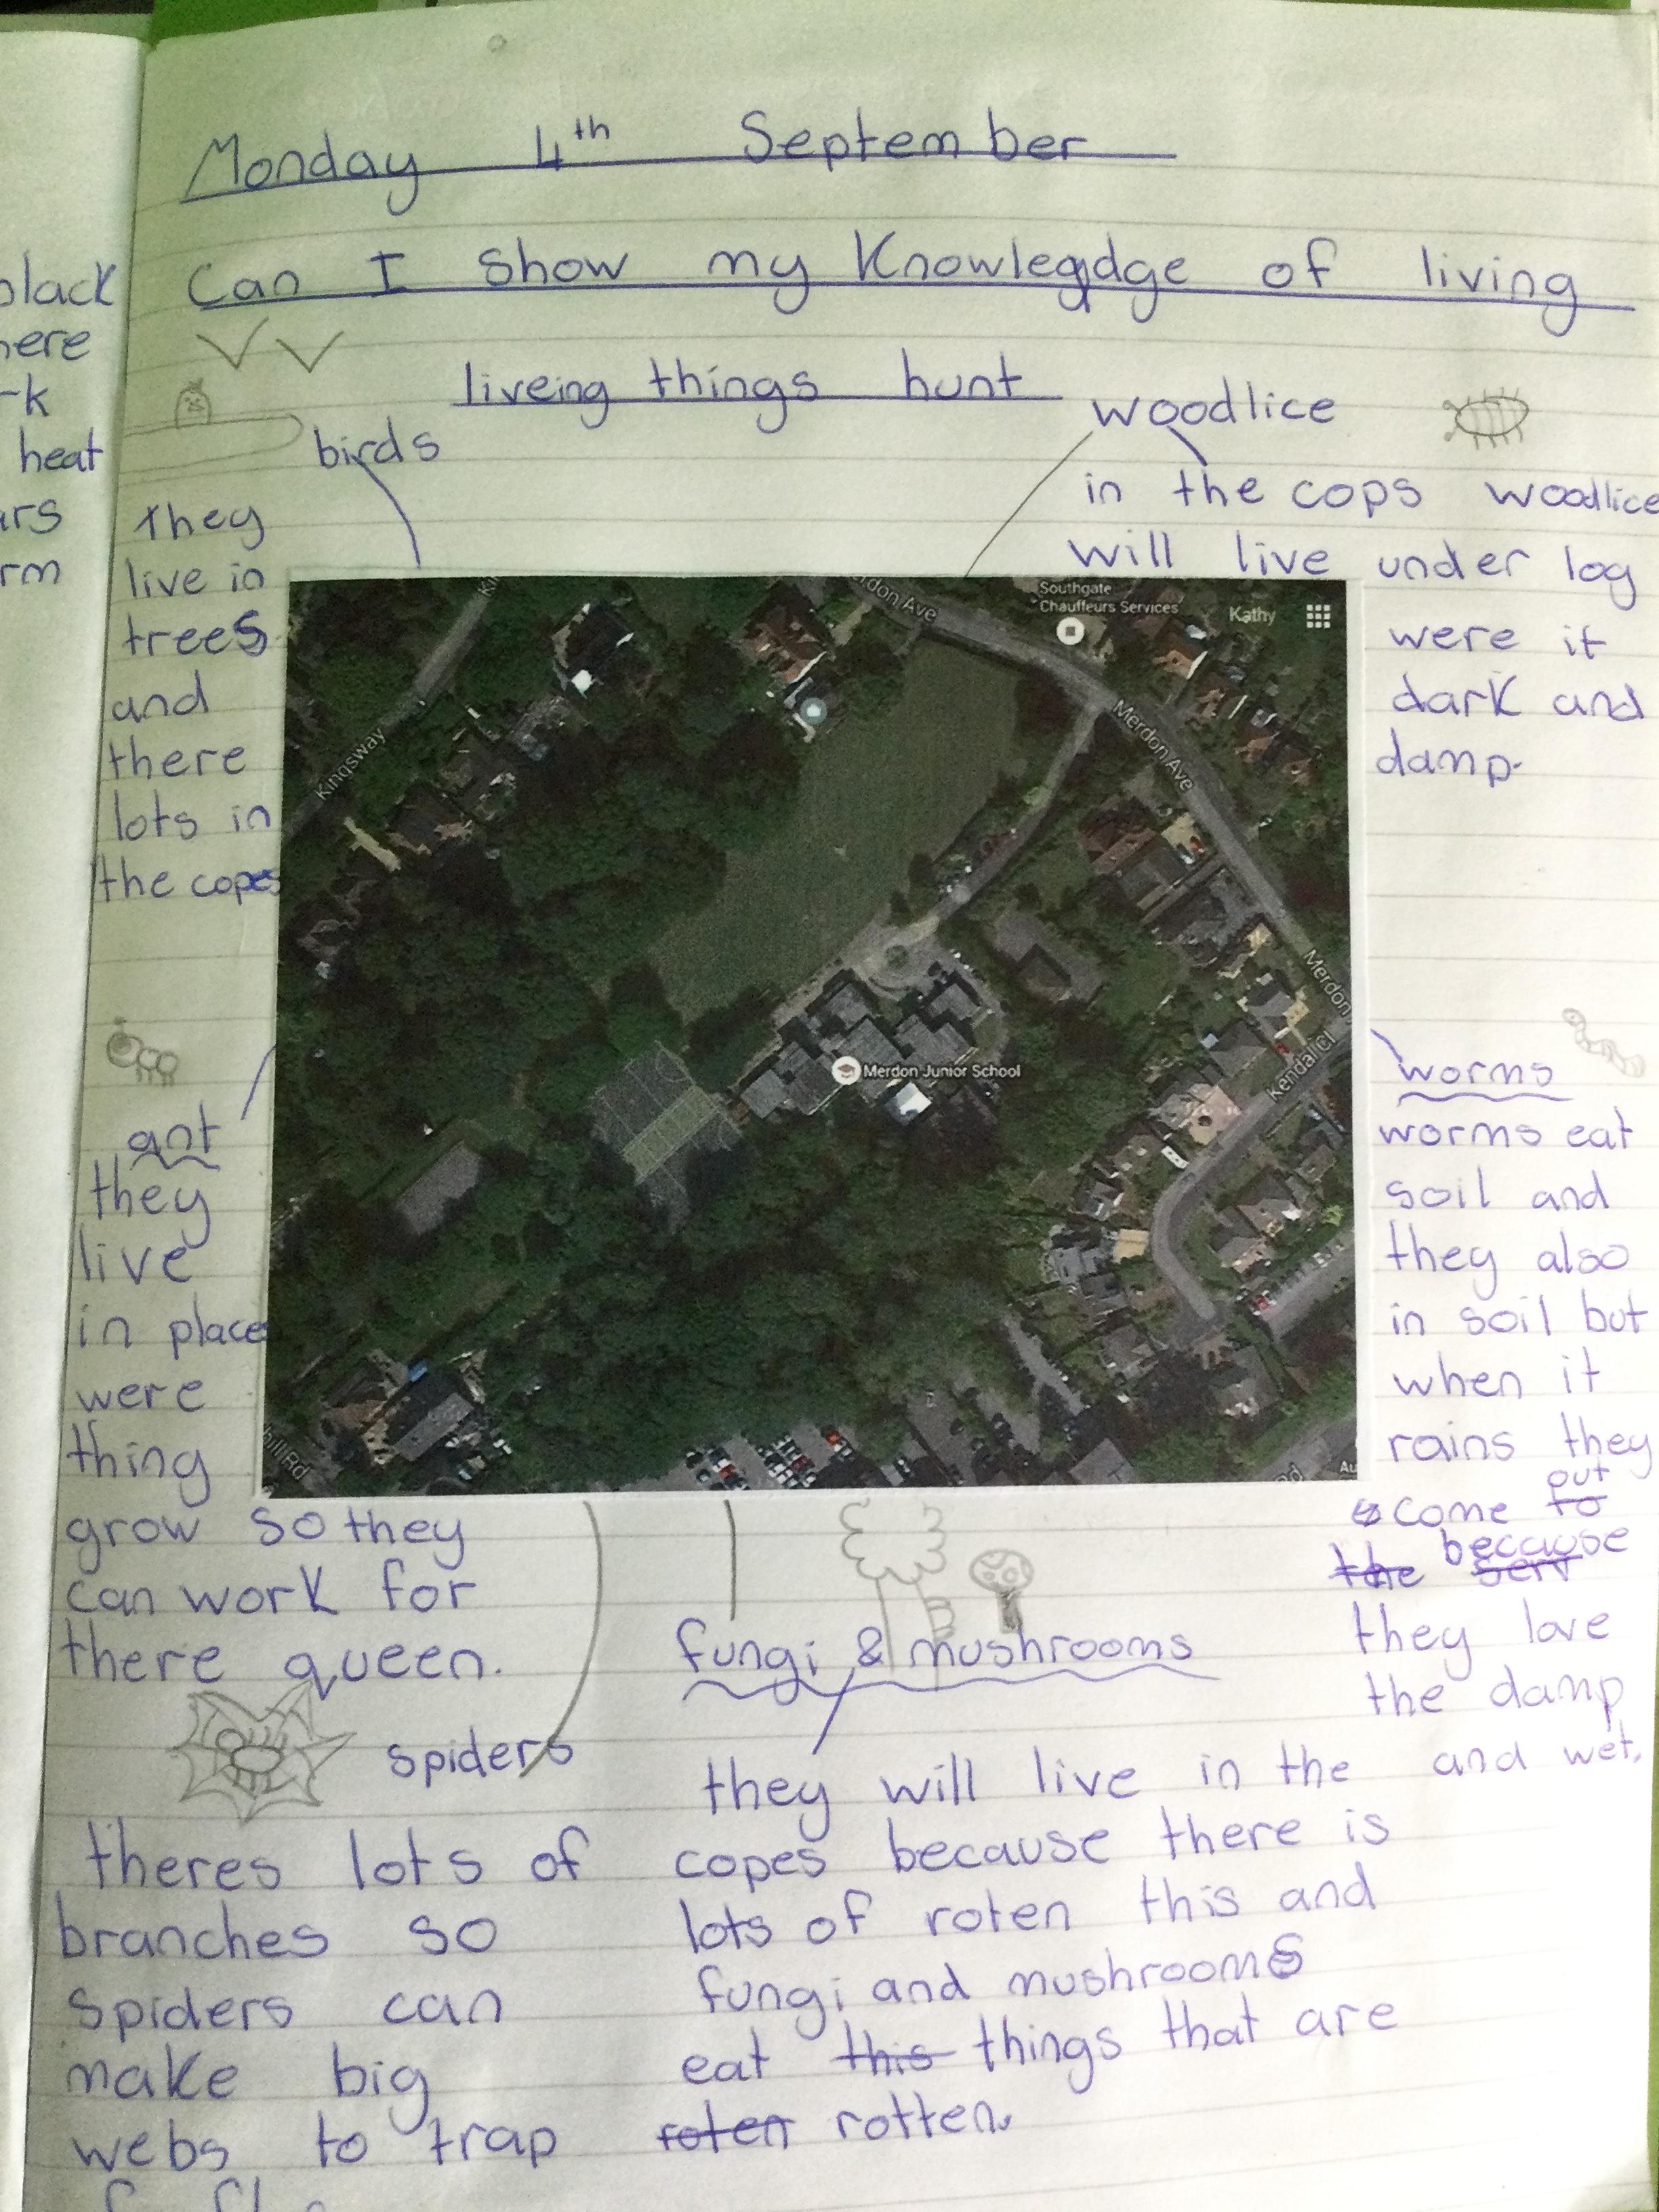 Monday 4th September
Can I show my Knowlegdge of living
liveing things hunt
birds
They
live in
trees
and
there
lots in
the copes
woodlice
in the cops woodlice
will live under log
were it
dark and
damp.
ant
they
live
in places
were
thing
grow so they
can work for
there queen.
worms
worms eat
soil and
they also
in soil but
when it
rains they
come to out
the because
they love
the damp
and wet.
spiders
theres lots of
branches so
spiders can
make big
webs to trap
fungi & mushrooms
they will live in the
copes because there is
lots of roten this and
fungi and mushrooms
eat this things that are
roten rotten.
black
here
rk
heat
ars
rm
Kingsway
Merdon Ave
Southgate
Chauffeurs Services
Kathy
Merdon Ave
Merdon
Kendal Cl
Merdon Junior School
hill Rd
Rd
Au